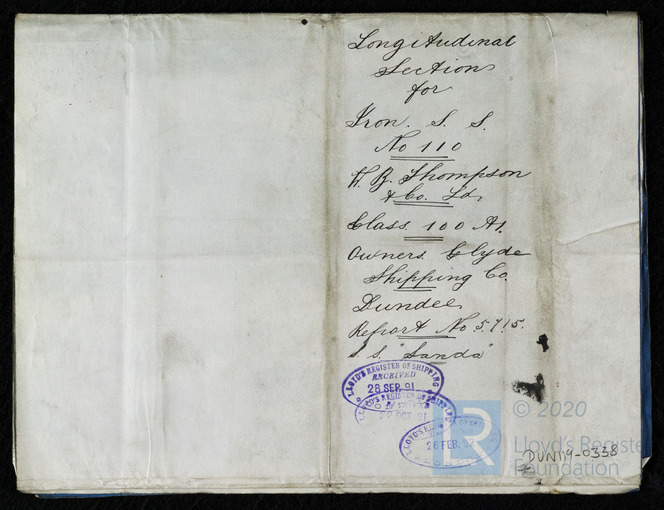 Longitudinal
Section
for
Iron. S. S.
No 110
W. B. Thompson
& Co. Ld.
Class 100 A1.
Owners. Clyde
Shipping Co.
Dundee
Report No 5715.
S. S. "Sanda"
LLOYD'S REGISTER OF SHIPPING
RECEIVED
28 SEP. 91
LLOYD'S REGISTER OF SHIPPING
OCT. 91
LLOYD'S REGISTER OF
26 FEB. 92
© 2020
Lloyd's Register
Foundation
DUN119-0338